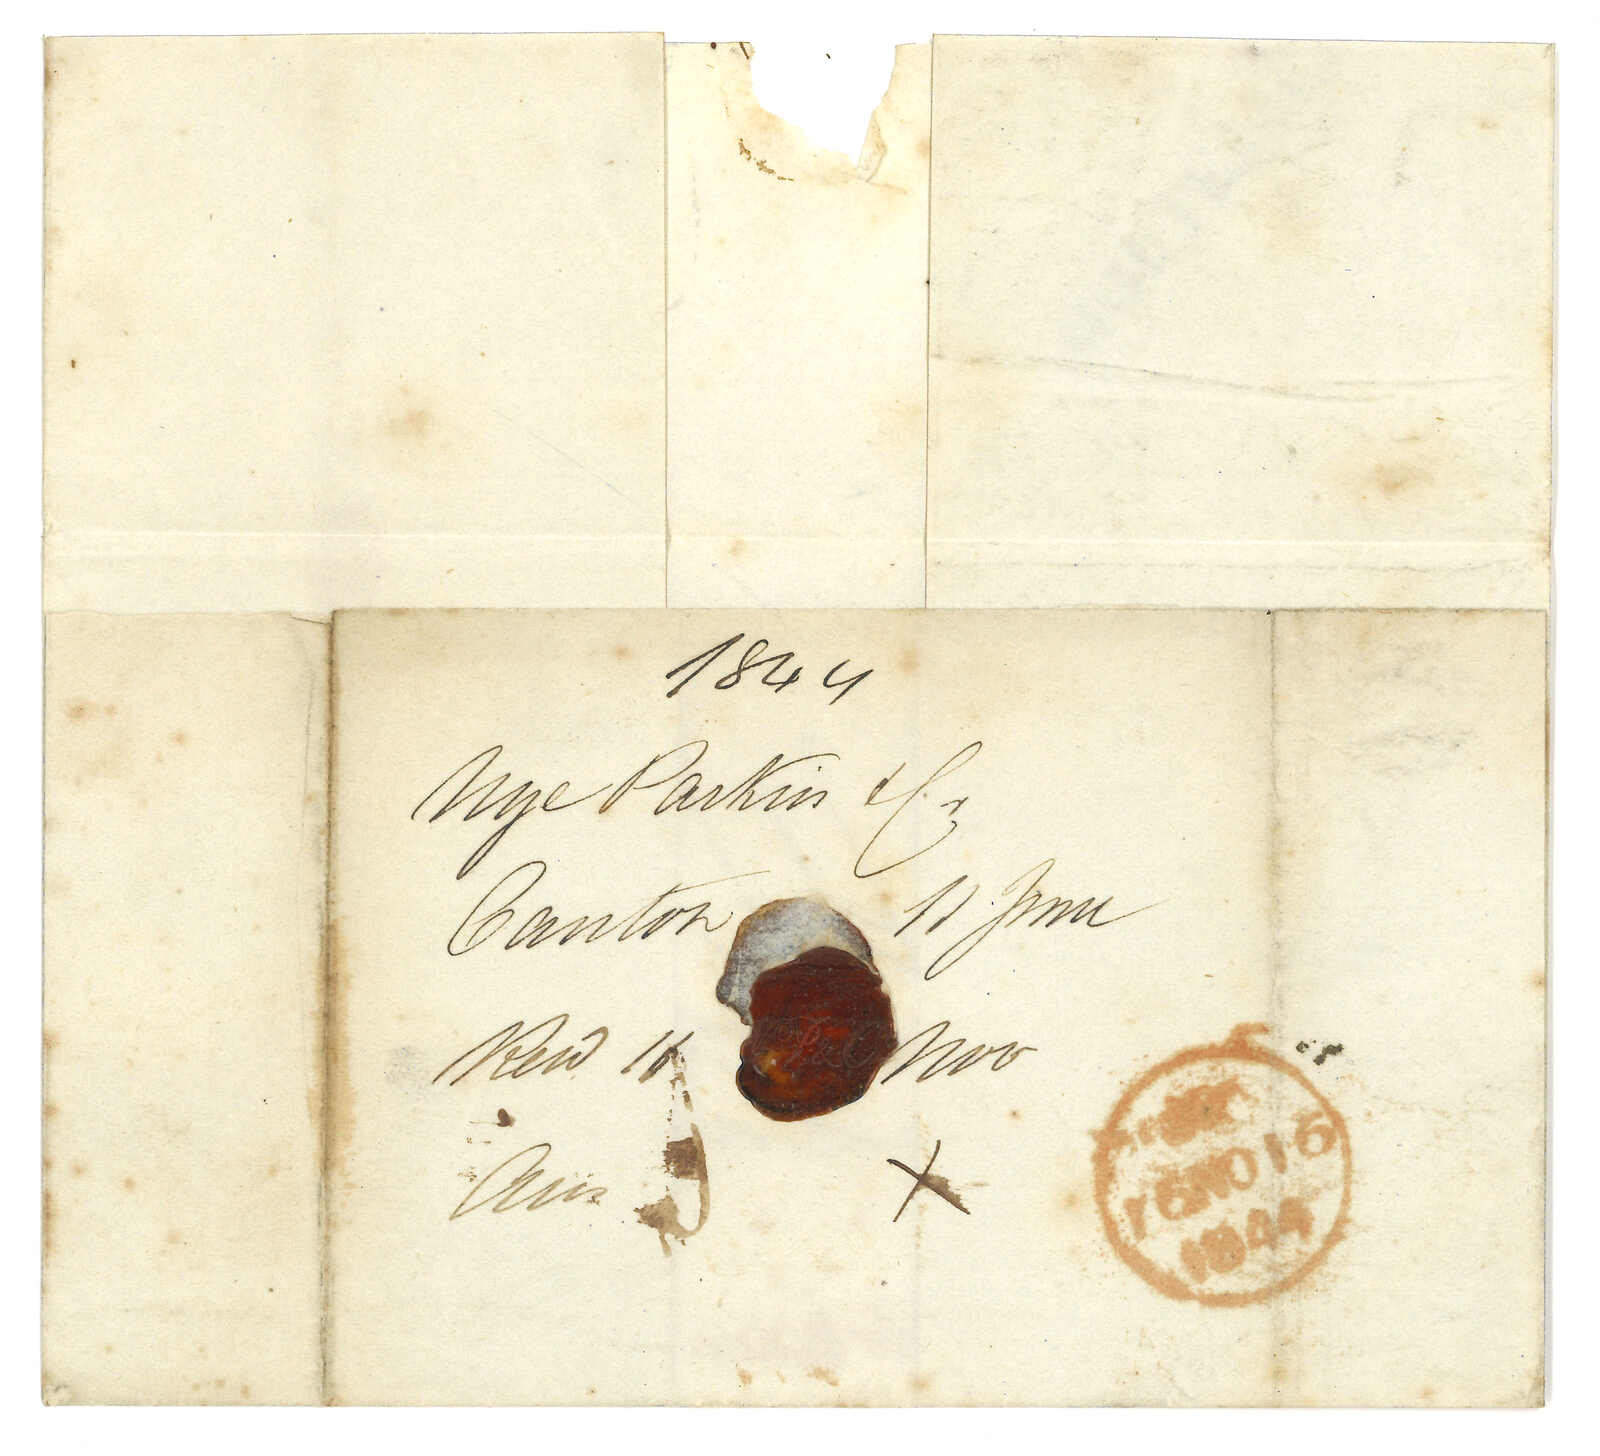 1844
Nye Parkin & Co
Canton 11 June
Recd 16 Nov
Ans
X
16 NO 16
1844